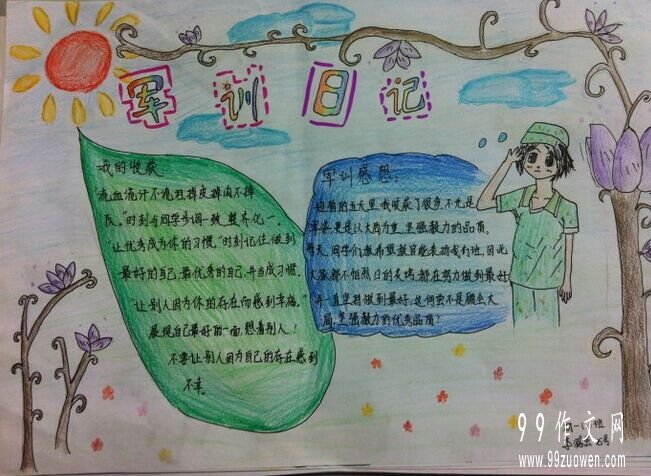 军训日记
我的收获:
"流血流汗不流泪掉皮掉肉不掉
队。"时刻与同学步调一致,整齐化一,
让优秀成为你的习惯。"时刻记住,做到
最好的自己,最优秀的自己,并当成习惯.
"让别人因为你的存在而感到幸福。"
展现自己最好的一面,想着别人!
不要让别人因为自己的存在感到
不幸。
军训感想:
短暂的五天里,我收获了很多,不光是
军姿,更是以大局为重,坚强毅力的品质。
每天,同学们都希望教官能表扬我们班,因此
大家都不怕烈日的炙烤,都在努力做到最好
并一直坚持做到最好,这何尝不是顾全大
局,坚强毅力的优秀品质?
99作文网
www.99zuowen.com